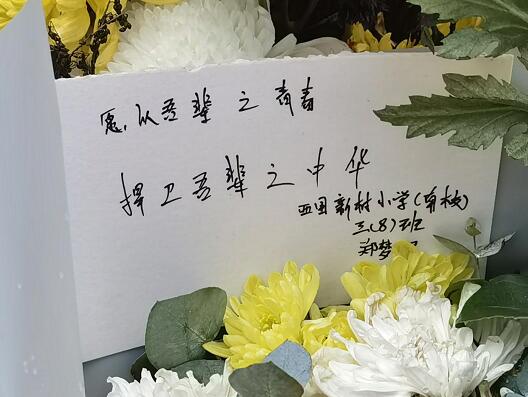 愿以吾辈之青春
捍卫吾辈之中华
西园新村小学(南校)
三(8)班
郑梦